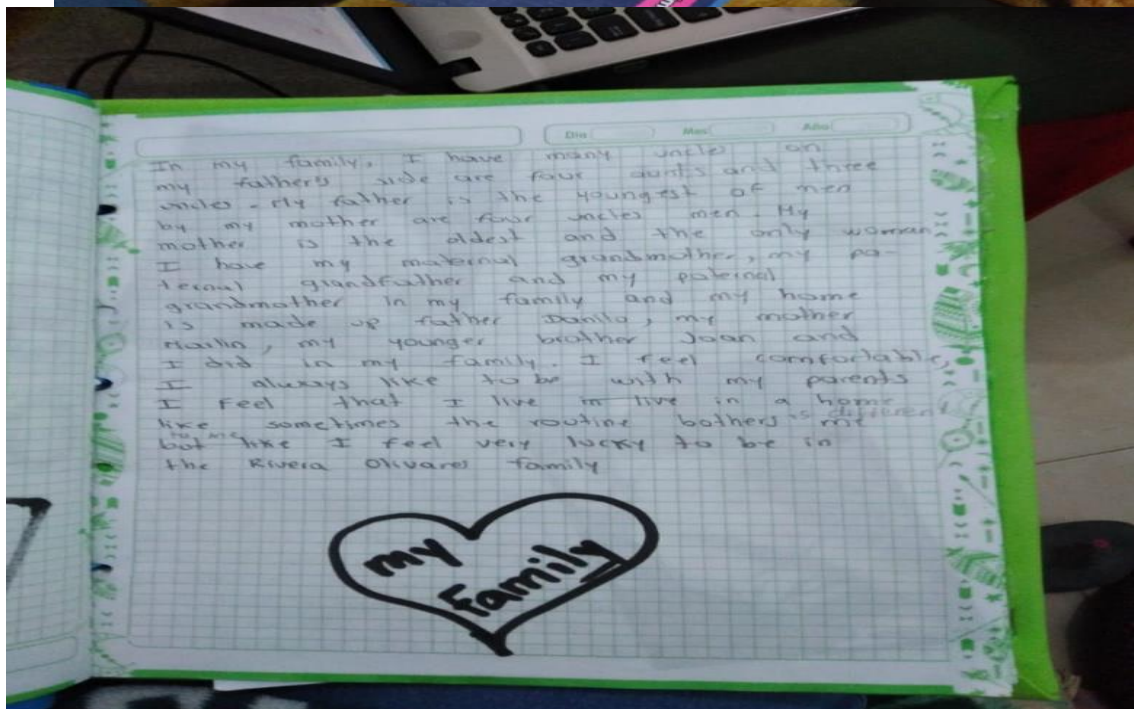 Dia Mes Año
In my family, I have many uncles on
my father's side are four aunts and three
uncles. My father is the youngest of men
by my mother are four uncles men. My
mother is the oldest and the only woman
I have my maternal grandmother, my pa-
ternal grandfather and my paternal
grandmother in my family and my home
is made up father Danilo, my mother
my younger brother Joan and
I did in my family. I feel comfortable,
I always like to be with my parents
I feel that I live in live in a home
like sometimes the routine bothers me is different
but like I feel very lucky to be in
the Rivera Olivares family
my
family